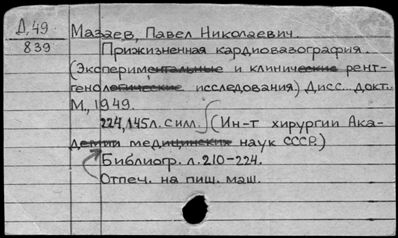 Д,49
839
Мазаев, Павел Николаевич.
Прижизненная кардиовазография.
(Экспериментальные и клинические рент-
генологические исследования) Дисс... докт.
М., 1949.
224, 145 л. с илл. (Ин-т хирургии Ака-
демии медицинских наук СССР.)
Библиогр. л. 210-224.
Отпеч. на пиш. маш.